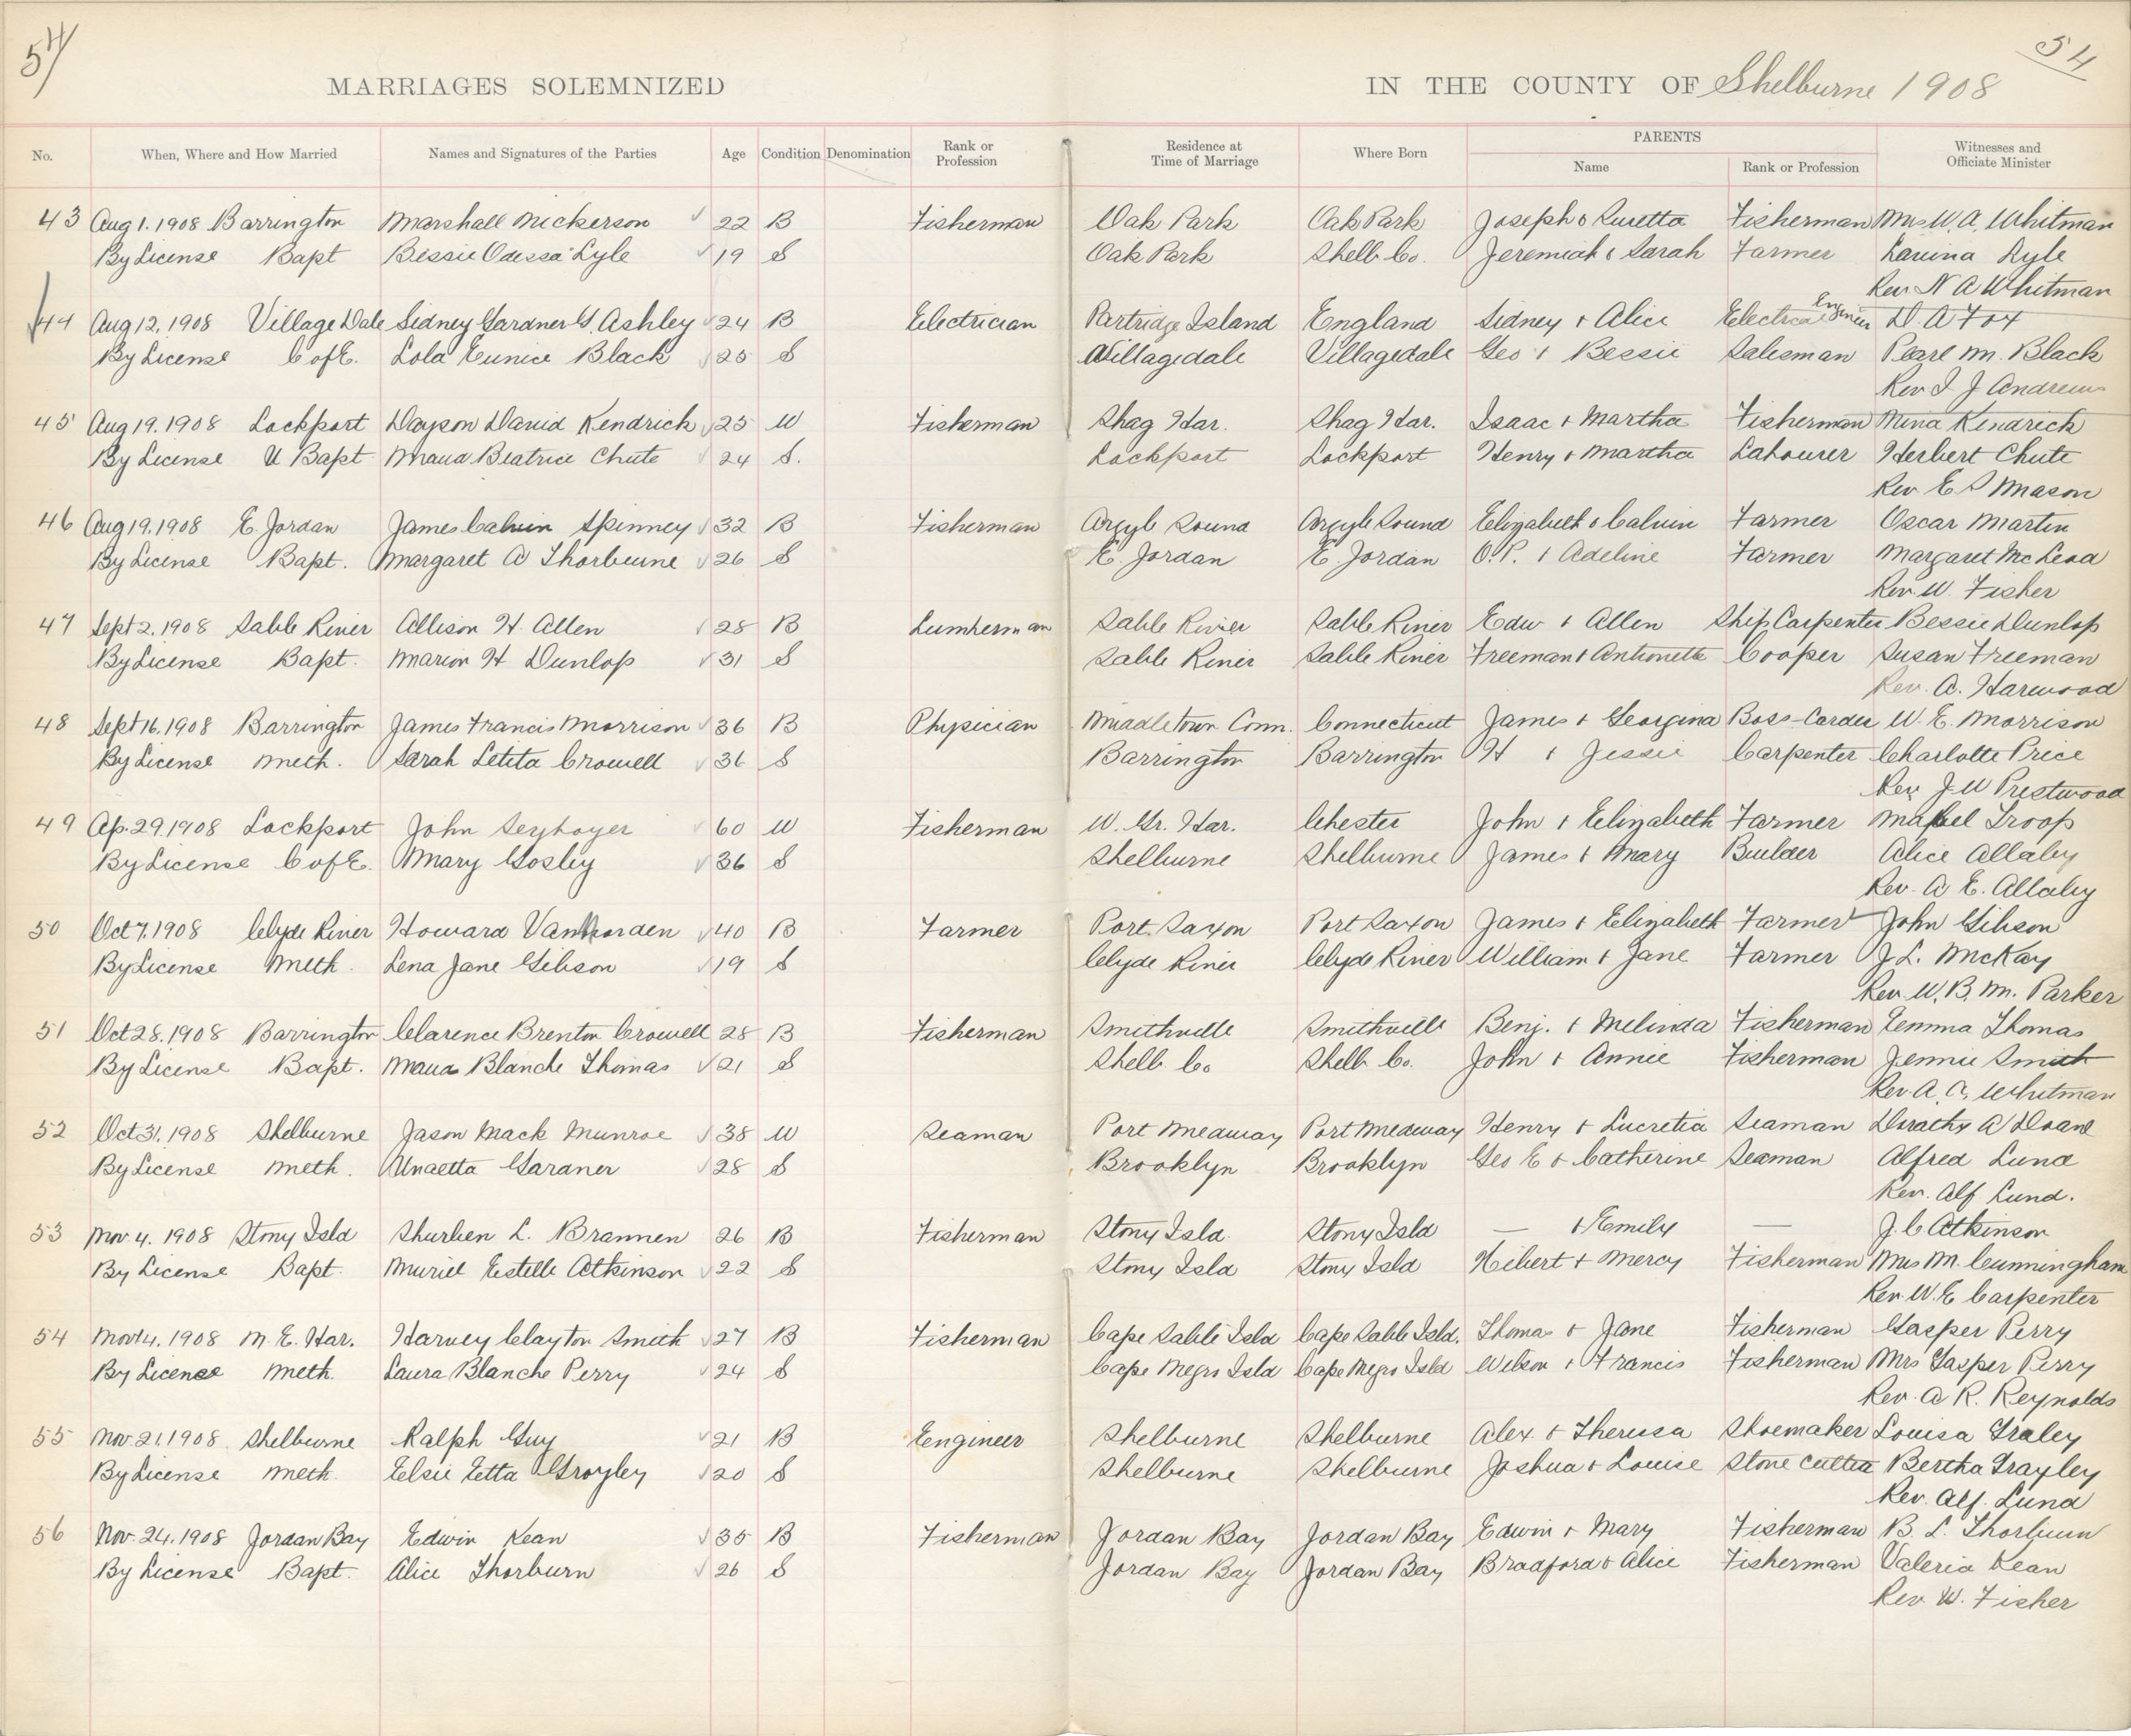 54 54
MARRIAGES SOLEMNIZED IN THE COUNTY OF Shelburne 1908
No. When, Where and How Married Names and Signatures of the Parties Age Condition Denomination Rank or Profession Residence at Time of Marriage Where Born PARENTS Name Rank or Profession Witnesses and Officiate Minister
43 Aug 1. 1908 Barrington Marshall Nickerson 22 B Fisherman Oak Park Oak Park Joseph & Luretta Fisherman Mrs W. A. Whitman
By License Bapt Bessie Odessa Lyle 19 S Oak Park Shelb. Co. Jeremiah & Sarah Farmer Lavina Lyle
Rev N A Whitman
44 Aug 12, 1908 Village Dale Sidney Gardner G. Ashley 24 B Electrician Partridge Island England Sidney & Alice Electrical Engineer D. A Fox
By License C of E. Lola Eunice Black 25 S Villagedale Villagedale Geo & Bessie Salesman Pearl M. Black
Rev I J Andrews
45 Aug 19. 1908 Lockport Dayson David Kendrick 25 W Fisherman Shag Har. Shag Har. Isaac & Martha Fisherman Mina Kendrick
By License U Bapt Maud Beatrice Chute 24 S. Lockport Lockport Henry & Martha Labourer Herbert Chute
Rev E S Mason
46 Aug 19. 1908 E. Jordan James Calvin Spinney 32 B Fisherman Argyle Sound Argyle Sound Elizabeth & Calvin Farmer Oscar Martin
By License Bapt. Margaret A Thorburne 26 S E. Jordan E. Jordan O. P. & Adeline Farmer Margaret McLeod
Rev. W. Fisher
47 Sept 2. 1908 Sable River Allison H. Allen 28 B Lumberman Sable River Sable River Edw & Allen Ship Carpenter Bessie Dunlop
By License Bapt. Marion H Dunlop 31 S Sable River Sable River Freeman & Antionette Cooper Susan Freeman
Rev. A. Harwood
48 Sept 16. 1908 Barrington James Francis Morrison 36 B Physician Middletown Conn. Connecticut James & Georgina Boss-Carder W. E. Morrison
By License Meth. Sarah Letita Crowell 36 S Barrington Barrington H & Jessie Carpenter Charlotte Price
Rev J W Prestwood
49 Ap. 29. 1908 Lockport John 60 W Fisherman W. Gr. Har. Chester John & Elizabeth Farmer Mabel Troop
By License C of E. Mary Gosley 36 S Shelburne Shelburne James & Mary Builder Alice Allaby
Rev. A E. Allaby
50 Oct 7. 1908 Clyde River Howard VanNorden 40 B Farmer Port Saxon Port Saxon James & Elizabeth Farmer John Gibson
By License Meth. Lena Jane Gibson 19 S Clyde River Clyde River William & Jane Farmer J L. McKay
Rev. W. B. M. Parker
51 Oct 28. 1908 Barrington Clarence Brenton Crowell 28 B Fisherman Smithville Smithville Benj. & Melinda Fisherman Emma Thomas
By License Bapt. Maud Blanche Thomas 21 S Shelb. Co Shelb. Co. John & Annie Fisherman Jennie Smith
Rev A. C. Whitman
52 Oct 31. 1908 Shelburne Jason Mack Munroe 38 W Seaman Port Medway Port Medway Henry & Lucretia Seaman Dorathy A Doane
By License Meth. Unaetta Gardner 28 S Brooklyn Brooklyn Geo E & Catherine Seaman Alfred Lund
Rev. Alf Lund.
53 Nov. 4. 1908 Stony Isld Shurben L. Brannen 26 B Fisherman Stony Isld. Stony Isld — & Emily — J. C Atkinson
By License Bapt. Muriel Estelle Atkinson 22 S Stony Isld Stony Isld Hebert & Mercy Fisherman Mrs M. Cunningham
Rev. W. E Carpenter
54 Nov 14. 1908 N. E. Har. Harvey Clayton Smith 27 B Fisherman Cape Sable Isld Cape Sable Isld. Thomas & Jane Fisherman Gasper Perry
By License Meth. Laura Blanche Perry 24 S Cape Negro Isld Cape Negro Isld Wilson & Francis Fisherman Mrs Gasper Perry
Rev. A R. Reynolds
55 Nov. 21. 1908 Shelburne Ralph Guy 21 B Engineer Shelburne Shelburne Alex. & Theressa Shoemaker Louisa Graley
By License Meth. Elsie Etta Groyley 20 S Shelburne Shelburne Joshua & Louise Stone Cutter Bertha Grayley
Rev. Alf. Lund
56 Nov. 24. 1908 Jordan Bay Edwin Kean 35 B Fisherman Jordan Bay Jordan Bay Edwin & Mary Fisherman B. L. Thorburn
By License Bapt. Alice Thorburn 26 S Jordan Bay Jordan Bay Bradford & Alice Fisherman Valeria Kean
Rev W. Fisher